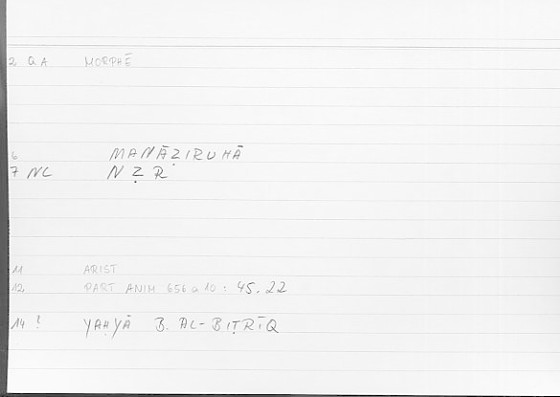 2 QA MORPHĒ
6 MANĀẒIRUHĀ
7 NC N Ẓ R
11 ARIST
12 PART ANIM 656 a 10 : 45.22
14 ! YAḤYĀ B. AL-BIṬRĪQ